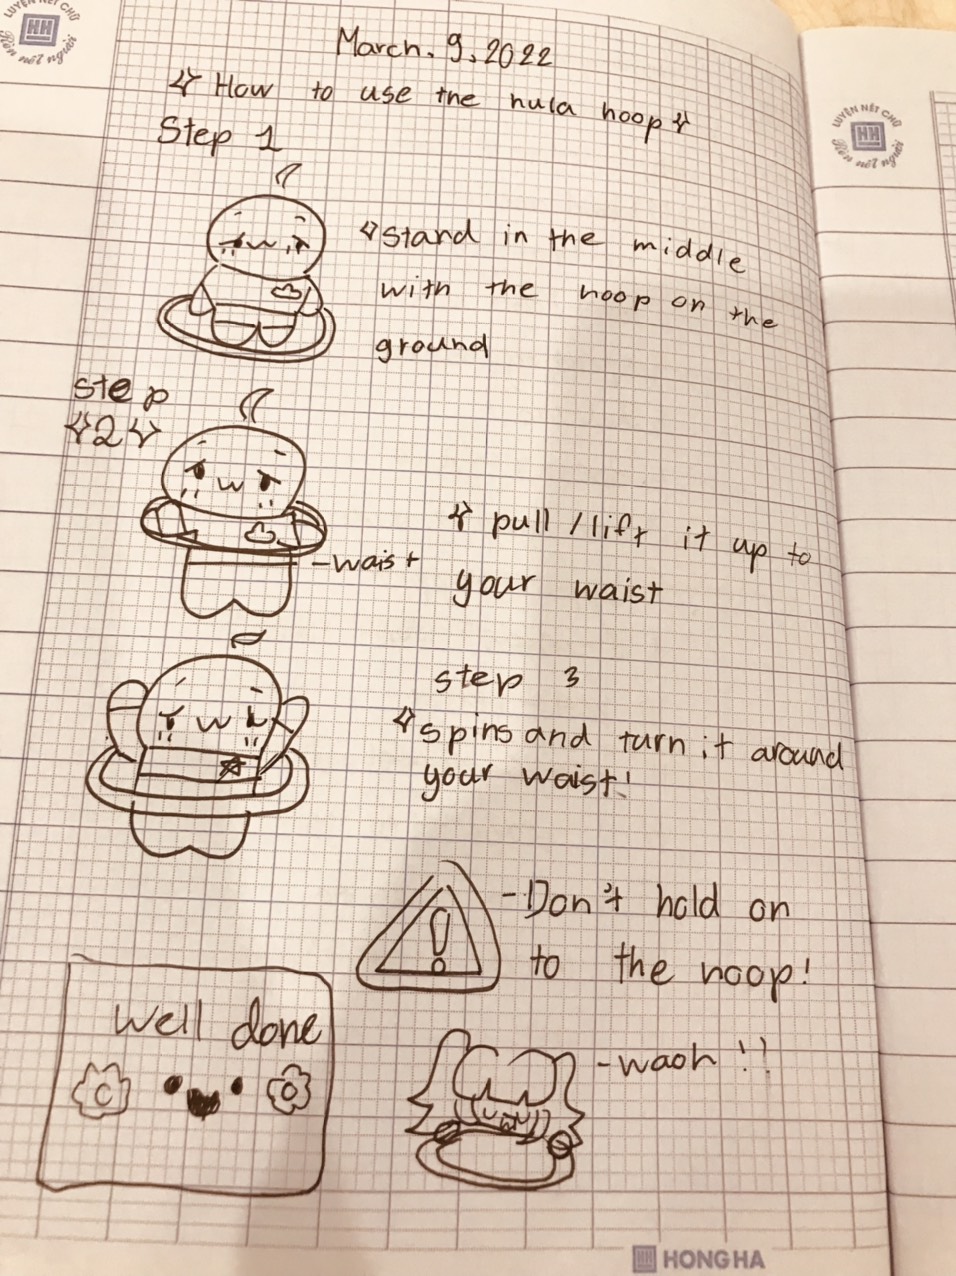 LUYỆN NÉT CHỮ
HH
Rèn nết người
March. 9. 2022
How to use the hula hoop
Step 1
stand in the middle
with the hoop on the
ground
step
2
pull / lift it up to
your waist
-waist
step 3
spins and turn it around
your waist!
-Don't hold on
to the hoop!
well done
-waoh !!
HH HONG HA
LUYỆN NÉT CHỮ
HH
Rèn nết người